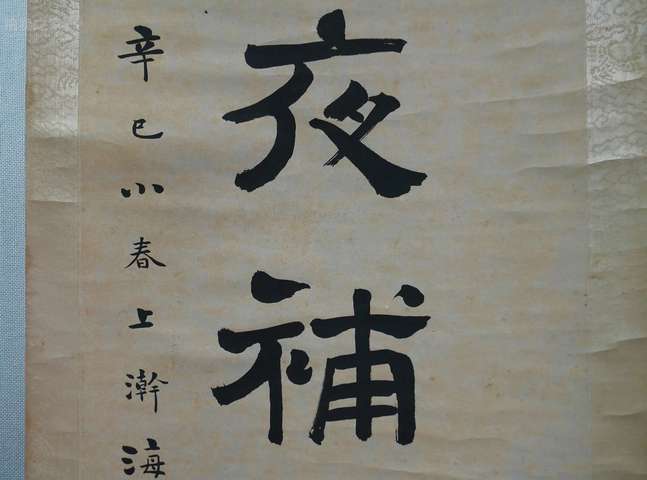 夜補
辛巳小春上澣海